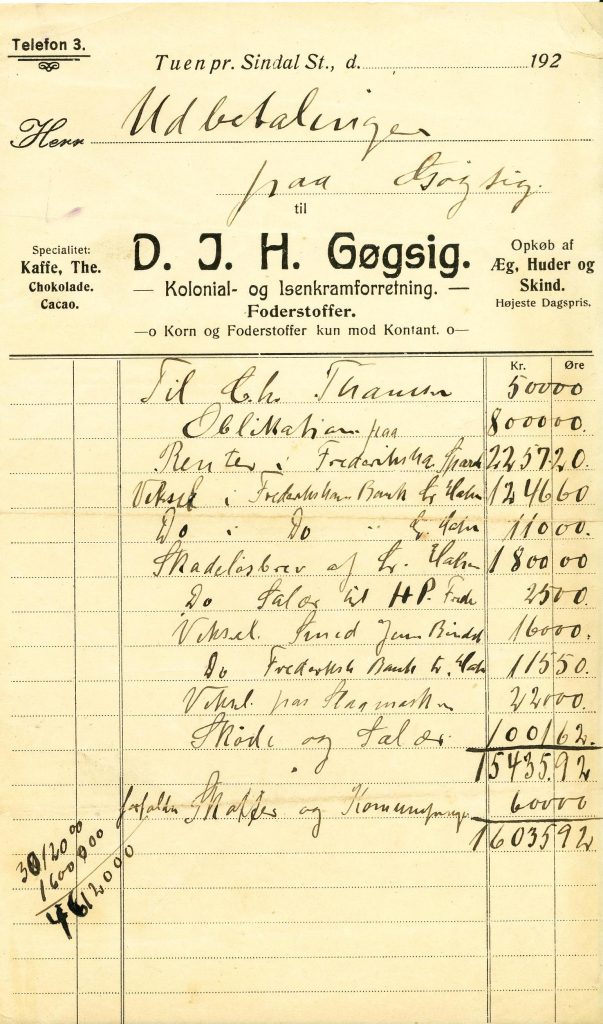 Telefon 3.
Tuen pr. Sindal St., d. 192
Herr Udbetalinger
paa Gøgsig.
til
D. J. H. Gøgsig.
Kolonial- og Isenkramforretning.
Foderstoffer.
—o Korn og Foderstoffer kun mod Kontant. o—
Specialitet:
Kaffe, The.
Chokolade.
Cacao.
Opkøb af
Æg, Huder og
Skind.
Højeste Dagspris.
Kr. Øre
Til Ch. Thamsen 500 00
Oblikation paa 8000 00.
Renter i Frederiksha Spark 2257 20.
Veksel i Frederikshavn Bank Cr. 1246 60
Do i Do " 110 00.
Skadeløsbrev af Cr. 1800 00
Do Salær til HP. Frede 25 00.
Veksel. Smed Jens Bindsl 160 00.
Do Frederiksh Bank Cr. 115 50.
Veksel. paa 220 00.
Skøde og Salær. 1001 62.
15435.92
forfalden Skatter og 600 00
16035 92
30120 00
1600 000
4612000